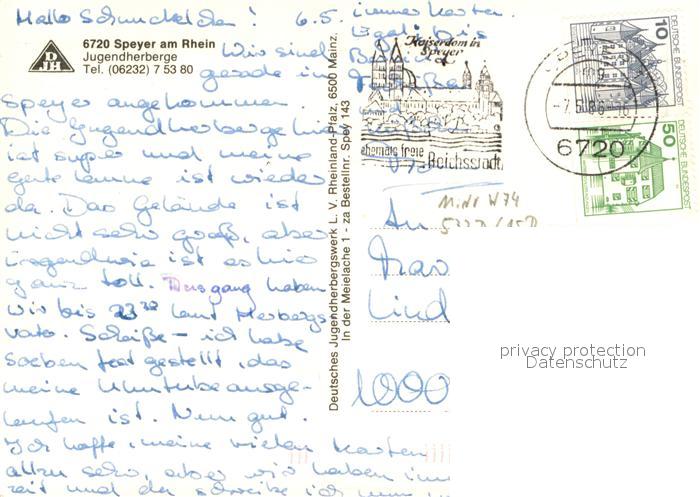 Hallo Schnuckelche! 6.5.
6720 Speyer am Rhein
Jugendherberge
Tel. (06232) 7 53 80
DJH
Wir sind
gerade in
Speyer angekommen.
Die Jugendherberge hier
ist super und meine
gute Laune ist wieder
da. Das Gelände ist
nicht sehr groß, aber
irgendwie ist es hier
ganz toll. Ausgang haben
wir bis 22 30 laut Herbergs
vater. Scheiße - ich habe
soeben fest gestellt, das
meine Tintube ausge-
laufen ist. Nun gut.
Ich hoffe, meine vielen Karten
allzu sehr, aber wir haben im
zeit und da schreibe ich nun
immer Karten.
Egal! Bis
Deutsches Jugendherbergswerk L. V. Rheinland-Pfalz, 6500 Mainz,
In der Meielache 1 - za Bestellnr. Spey 143
Kaiserdom in
Speyer
ehemals freie
Reichsstadt
-7.5.86
6720
10
DEUTSCHE BUNDESPOST
50
DEUTSCHE BUNDESPOST
An
Frau
Lind
1000
privacy protection
Datenschutz